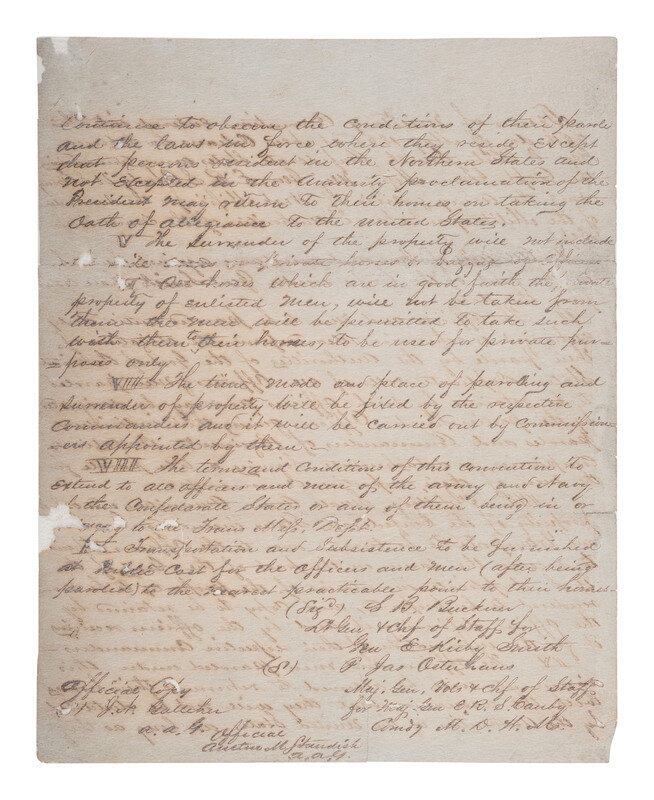 Continue to observe the conditions of their parole
and the laws in force where they reside, Except
that persons resident in the Northern States and
not Excepted in the Amnesty proclamation of the
President may return to their homes on taking the
Oath of Allegiance to the United States.
V The surrender of the property will not include
side arms or private horses or baggage of officers
All horses which are in good faith the private
property of enlisted men, will not be taken from
them the men will be permitted to take such
with them to their homes, to be used for private pur-
poses only
VII The time mode and place of paroling and
surrender of property will be fixed by the respective
Commanders and it will be carried out by Commission
ers appointed by them –
VIII The terms and conditions of this convention to
extend to all officers and men of the army and Navy
the Confederate States or any of them being in or
to the Trans Miss. Dept.
Transportation and Subsistence to be furnished
at Public Cost for the officers and men (after being
paroled) to the nearest practicable point to their homes.
(Sig^d) S. B. Buckner
Lt Gen & Chf of Staff for
Gen E Kirby Smith
(S) P. Jos Osterhaus
Official Copy Maj. Gen. Vols & Chf of Staff
for Maj. Gen E. R. S. Canby
a. a. G. Comdg M. D. W. M.
Official
Austin M. Standish
a. a. G.